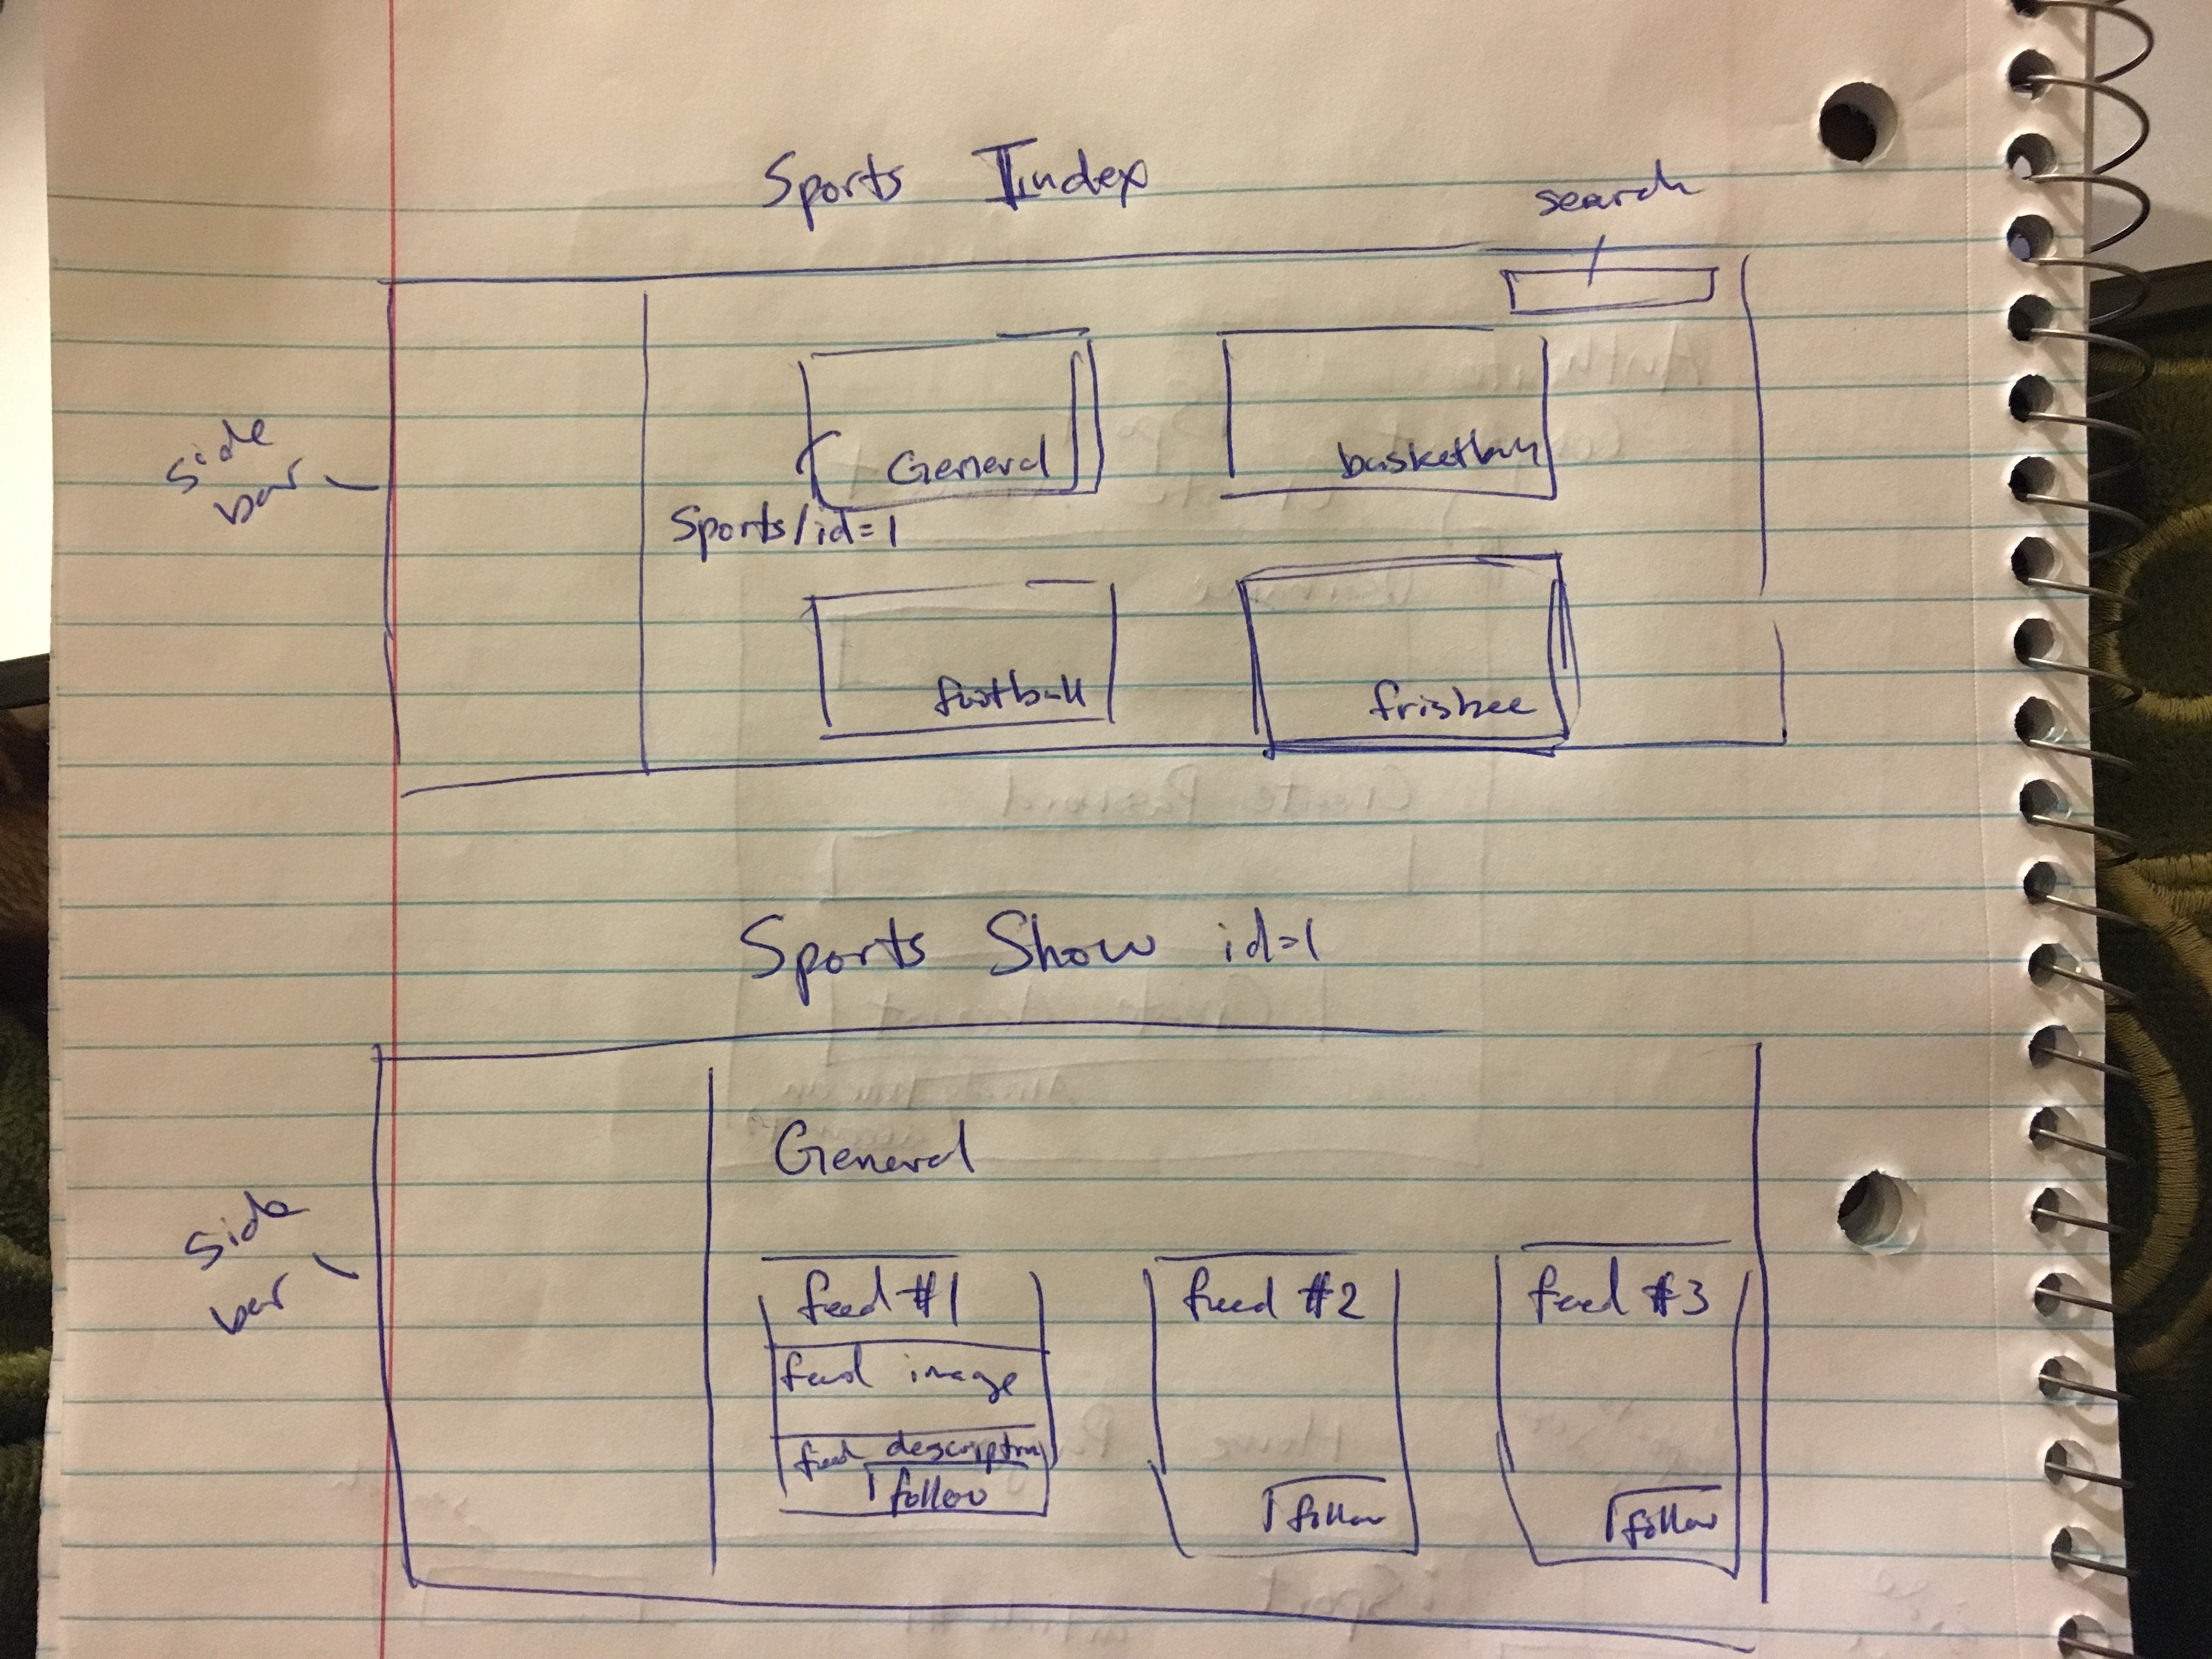 Sports Index
search
side
bar
General
basketball
Sports/id=1
football
frisbee
Sports Show id=1
side
bar
General
feed #1
feed #2
feed #3
feed image
feed description
follow
follow
follow
Create Password